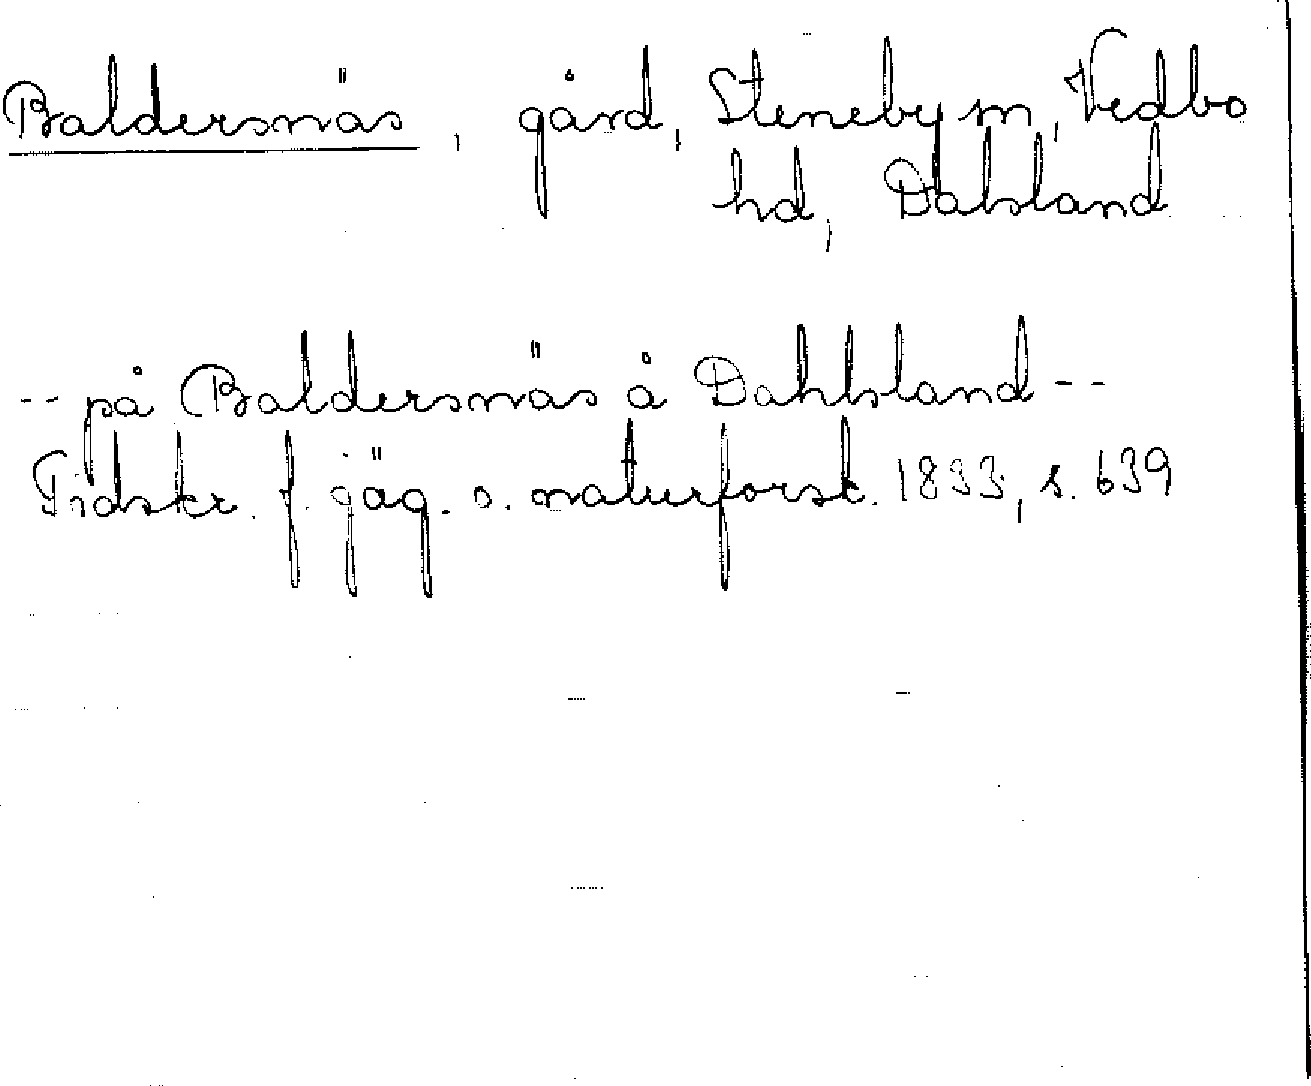 Baldersnäs, gård, Steneby sn, Vedbo
hd, Dalsland
-- på Baldersnäs å Dahlsland --
Tidskr. f. jäg. o. naturforsk. 1833, s. 639